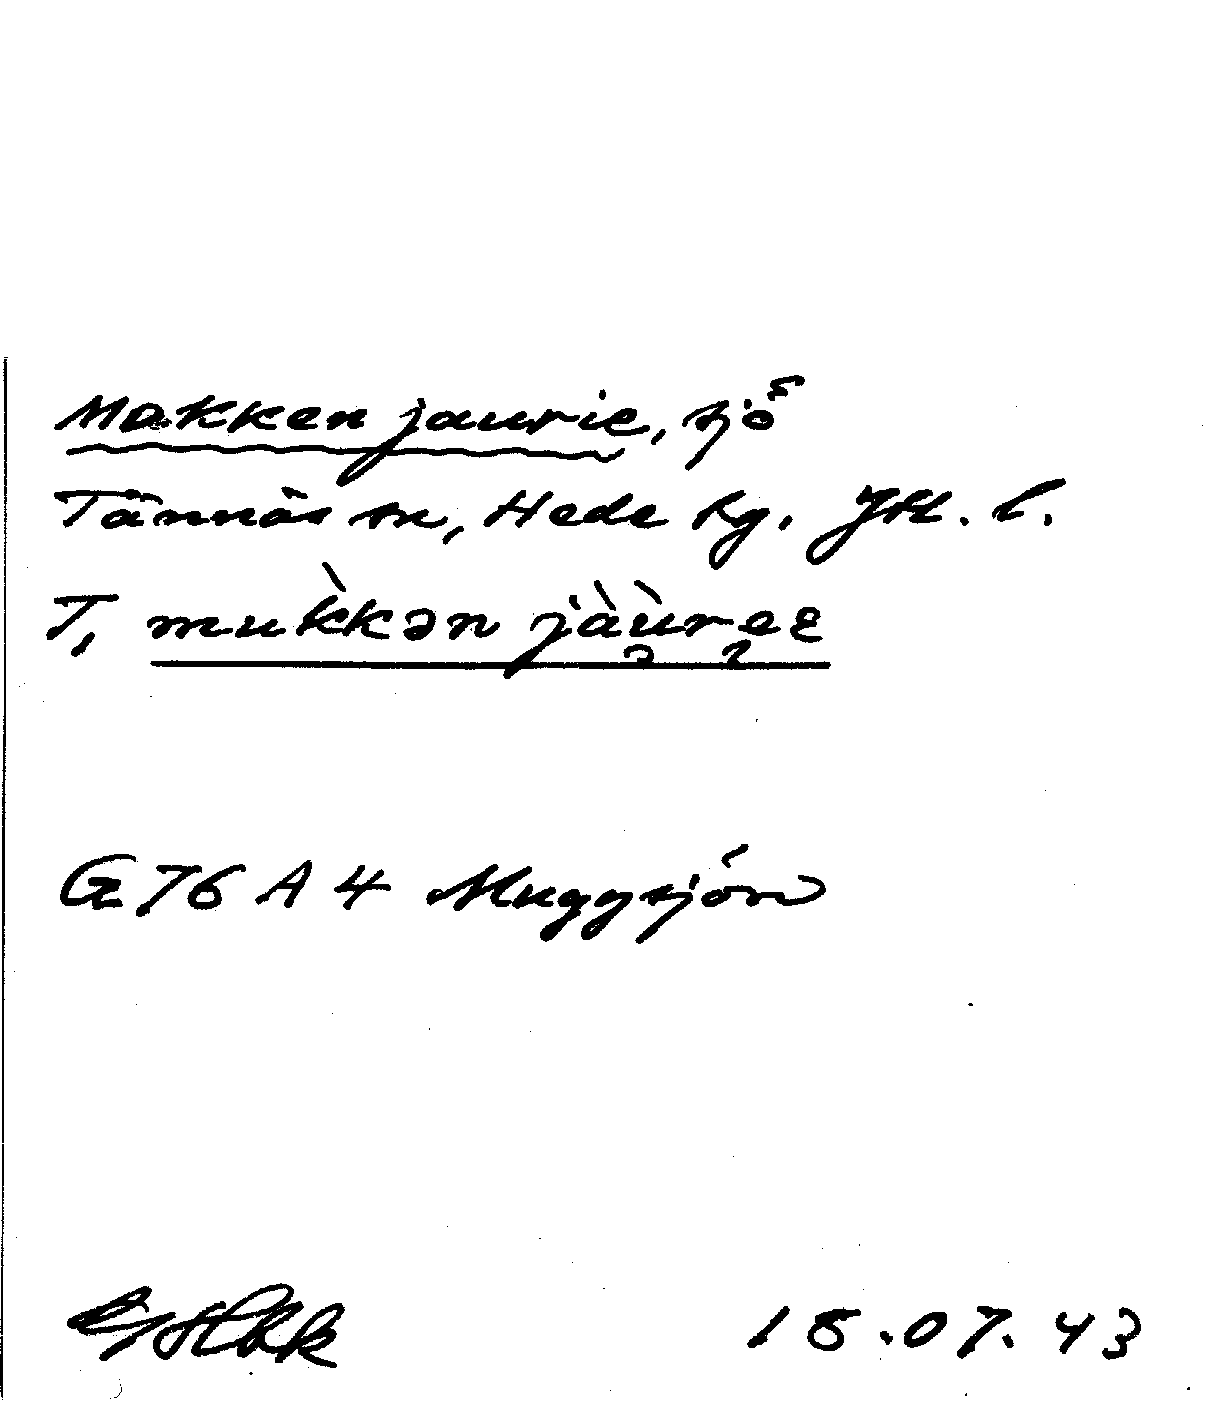 Mokken jaurie, sjö
Tännäs sn, Hede tg. Jtl. l.
T, mùkkən jàùree
G 76 A 4 Muggsjön
18.07.43